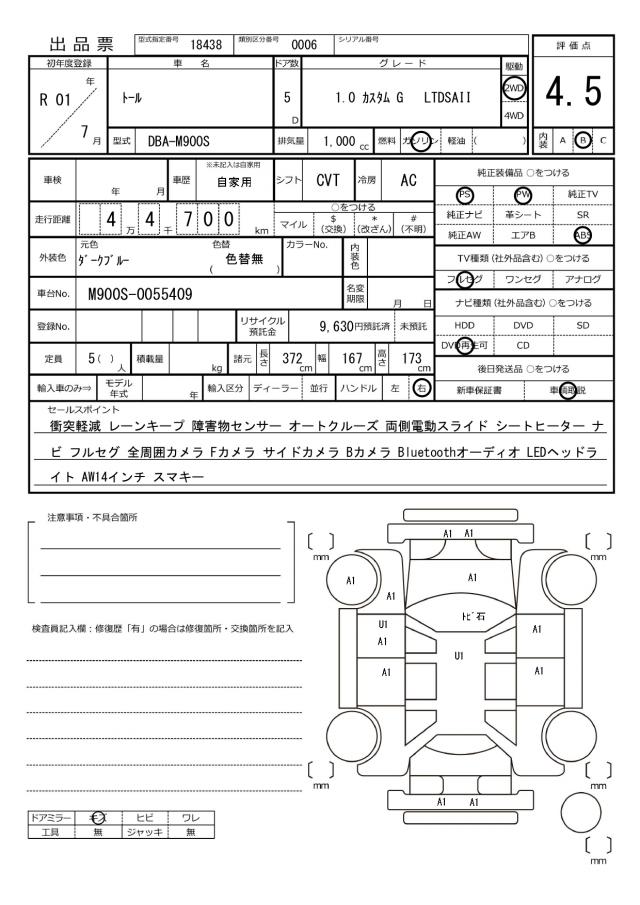 出品票 型式指定番号 18438 類別区分番号 0006 シリアル番号
評価点
4.5
内装 A B C
初年度登録 車名 ドア数 グレード 駆動
R 01 年 7 月 トール 5 D 1.0 カスタム G LTDSAII 2WD
4WD
型式 DBA-M900S 排気量 1,000 cc 燃料 ガソリン 軽油 ( )
車検 年 月 車歴 ※未記入は自家用 自家用 シフト CVT 冷房 AC
走行距離 4 万 4 千 7 0 0 km
○をつける
マイル $(交換) *(改ざん) #(不明)
外装色 元色 ダークブルー 色替 ( 色替無 ) カラーNo. 内装色
車台No. M900S-0055409 名変期限 月 日
登録No. リサイクル預託金 9,630円預託済 未預託
定員 5( )人 積載量 kg 諸元 長さ 372 cm 幅 167 cm 高さ 173 cm
輸入車のみ⇒ モデル年式 年 輸入区分 ディーラー 並行 ハンドル 左 右
純正装備品 ○をつける
PS PW 純正TV
純正ナビ 革シート SR
純正AW エアB ABS
TV種類(社外品含む) ○をつける
フルセグ ワンセグ アナログ
ナビ種類(社外品含む) ○をつける
HDD DVD SD
DVD再生可 CD
後日発送品 ○をつける
新車保証書 車輌取説
セールスポイント
衝突軽減 レーンキープ 障害物センサー オートクルーズ 両側電動スライド シートヒーター ナ
ビ フルセグ 全周囲カメラ Fカメラ サイドカメラ Bカメラ Bluetoothオーディオ LEDヘッドラ
イト AW14インチ スマキー
注意事項・不具合箇所
検査員記入欄：修復歴「有」の場合は修復箇所・交換箇所を記入
ドアミラー キズ ヒビ ワレ
工具 無 ジャッキ 無
A1 A1
[ ] mm
[ ] mm
A1
A1
A1
A1
トビ石
U1
A1
A1
U1
A1
A1
[ ] mm
[ ] mm
A1 A1
[ ] mm